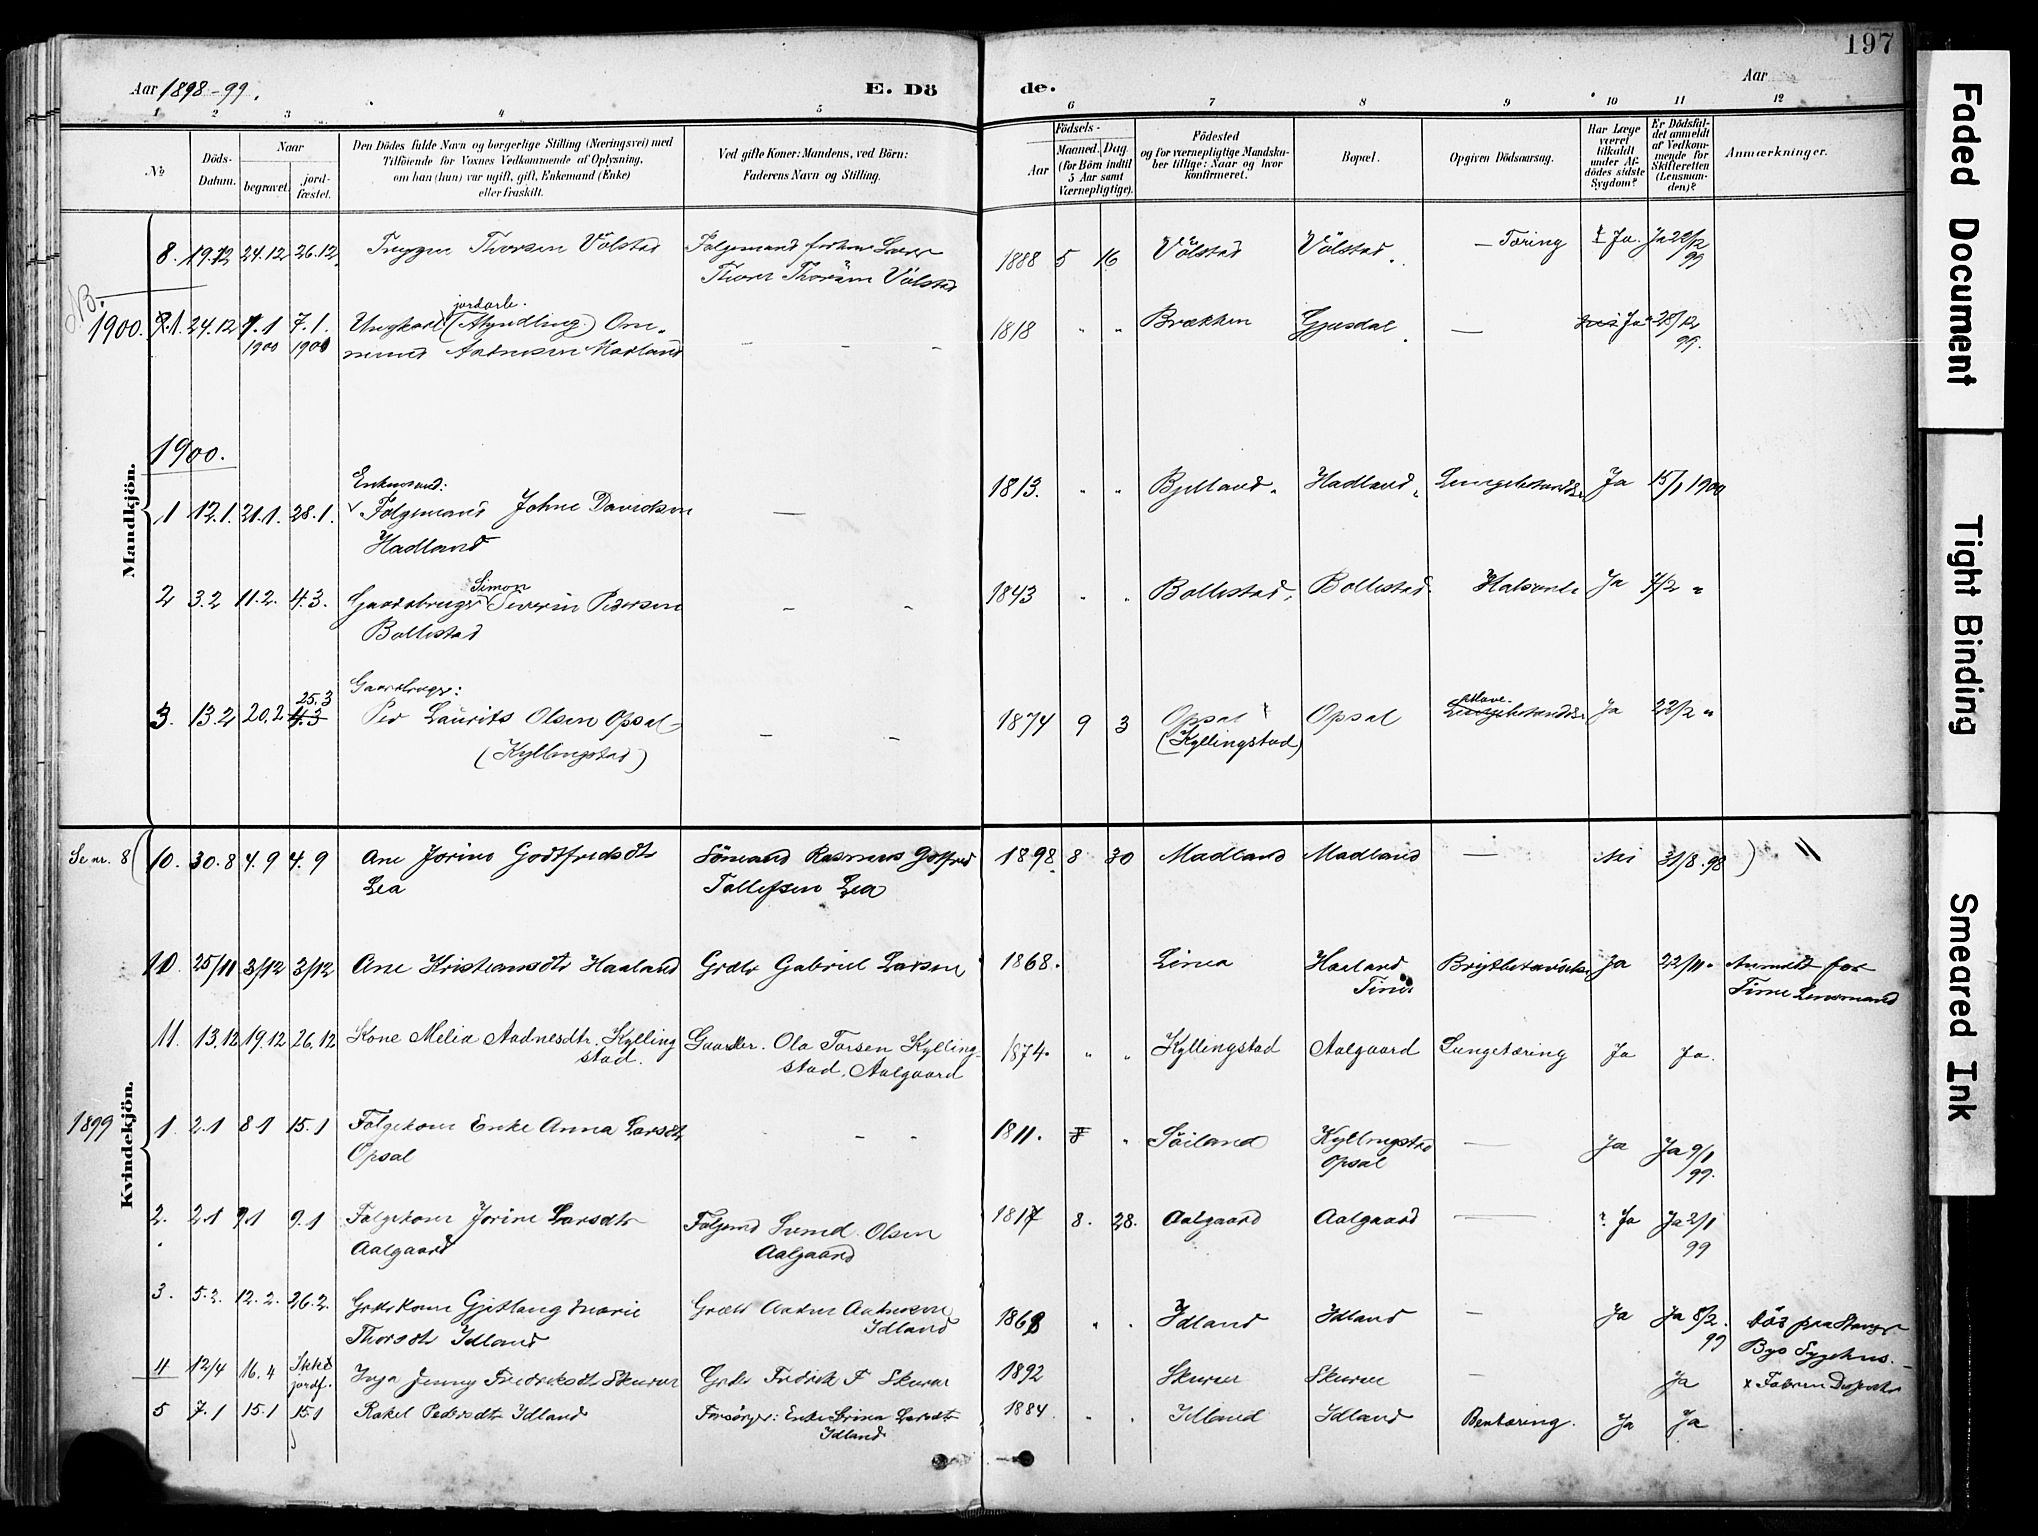 197
Aar 1898-99.
E. Dö de.
Aar
1 2 3 4 5 6 7 8 9 10 11 12
No
Döds-Datum.
Naar
begravet.
jord-fæstet.
Den Dödes fulde Navn og borgerlige Stilling (Næringsvei) med
Tilföiende for Voxnes Vedkommende af Oplysning,
om han (hun) var ugift, gift, Enkemand (Enke)
eller fraskilt.
Ved gifte Koner: Mandens, ved Börn:
Faderens Navn og Stilling.
Födsels-
Aar
Maaned. Dag.
(for Börn indtil
5 Aar samt
Værnepligtige).
Födested
og for værnepligtige Mandska-
ber tillige: Naar og hvor
konfirmeret.
Bopæl.
Opgiven Dödsaarsag.
Har Læge
været
tilkaldt
under Af-
dödes sidste
Sygdom?
Er Dödsfal-
det anmeldt
af Vedkom-
mende for
Skifteretten
(Lensman-
den)?
Anmærkninger.
Mandkjön.
8. 19.12 24.12 26.12. Tryggve Thorsen Völstad 1888 5 16 Völstad Völstad. — Tæring Ja. Ja 22/12
Thorsen Völstad 99
NB.
1900. 24.12 7.1 7.1. Ungkarl jordarb. Om- 1818 " " Brækken Gjesdal — Ja 28/12
1900 1900 mund Aadnesen Madland - - - 99.
1900.
Enkemand:
1 12.1. 21.1. 28.1. Folgemand Johne Davidsen — 1813. " " Bjelland Hadland Ja 15/1 1900
Hadland
Simon
2 3.2 11.2. 4.3. Gaardbruger Severin Pedersen - - 1843 " " Bollestad. Bollestad. Ja /2 "
Bollestad
Gaardbruger: 25.3
3. 13.2 20.2 4.3 Per Laurits Olsen Opsal - - 1874 9 3 Opsal Opsal Ja 22/2 "
(Kyllingstad) (Kyllingstad)
Kvindekjön.
Se nr. 8 ( 10. 30.8 4.9 4.9 Ane Jorine Godtfredsdtr Rasmus 1898. 8 30 Madland Madland — Nei 31/8.98 ) "
Lea Tollefsen Lea
10. 25/11 3/12 3/12 Ane Kristensdtr Haaland Gabriel Larsen 1868. Haaland Ja 22/11. Anmeldt for
Time Time Lensmand
11. 13.12 19.12 26.12 Kone Melia Aadnesdtr. Kylling- Gaardbr. Ola Torsen Kylling- 1874. " " Kyllingstad Aalgaard Lungetæring Ja Ja.
stad. stad, Aalgaard
1899 1. 2.1 8.1 15.1 Folgekone Enke Anna Larsdtr - - 1811. " Söiland Kyllingstad — Ja Ja 9/1
Opsal Opsal 99.
2. 2.1 9.1 9.1 Folgekone Jorine Larsdtr Folgemd Svend Olsen 1817 8. 28. Aalgaard Aalgaard — Ja Ja 2/1
Aalgaard Aalgaard 99
3. 5.2. 12.2. 26.2. Marie Aadne Aadnesen 1868 " . Idland Idland — Ja Ja 8/2.
Thorsdtr Idland Idland 99 Död paa Stavgr
Bys Sygehus.
4 12/4 16.4 Ikke
jordf. Inga Jenny Fredriksdtr Skurve Fredrik F Skurve 1892 Skurve Skurve — Ja
5 7.1 15.1 15.1 Rakel Pedersdtr Idland Forsörger: Enke Larsdtr 1884 . . Idland Idland Bentæring. Ja Ja .
Idland
Faded Document
Tight Binding
Smeared Ink